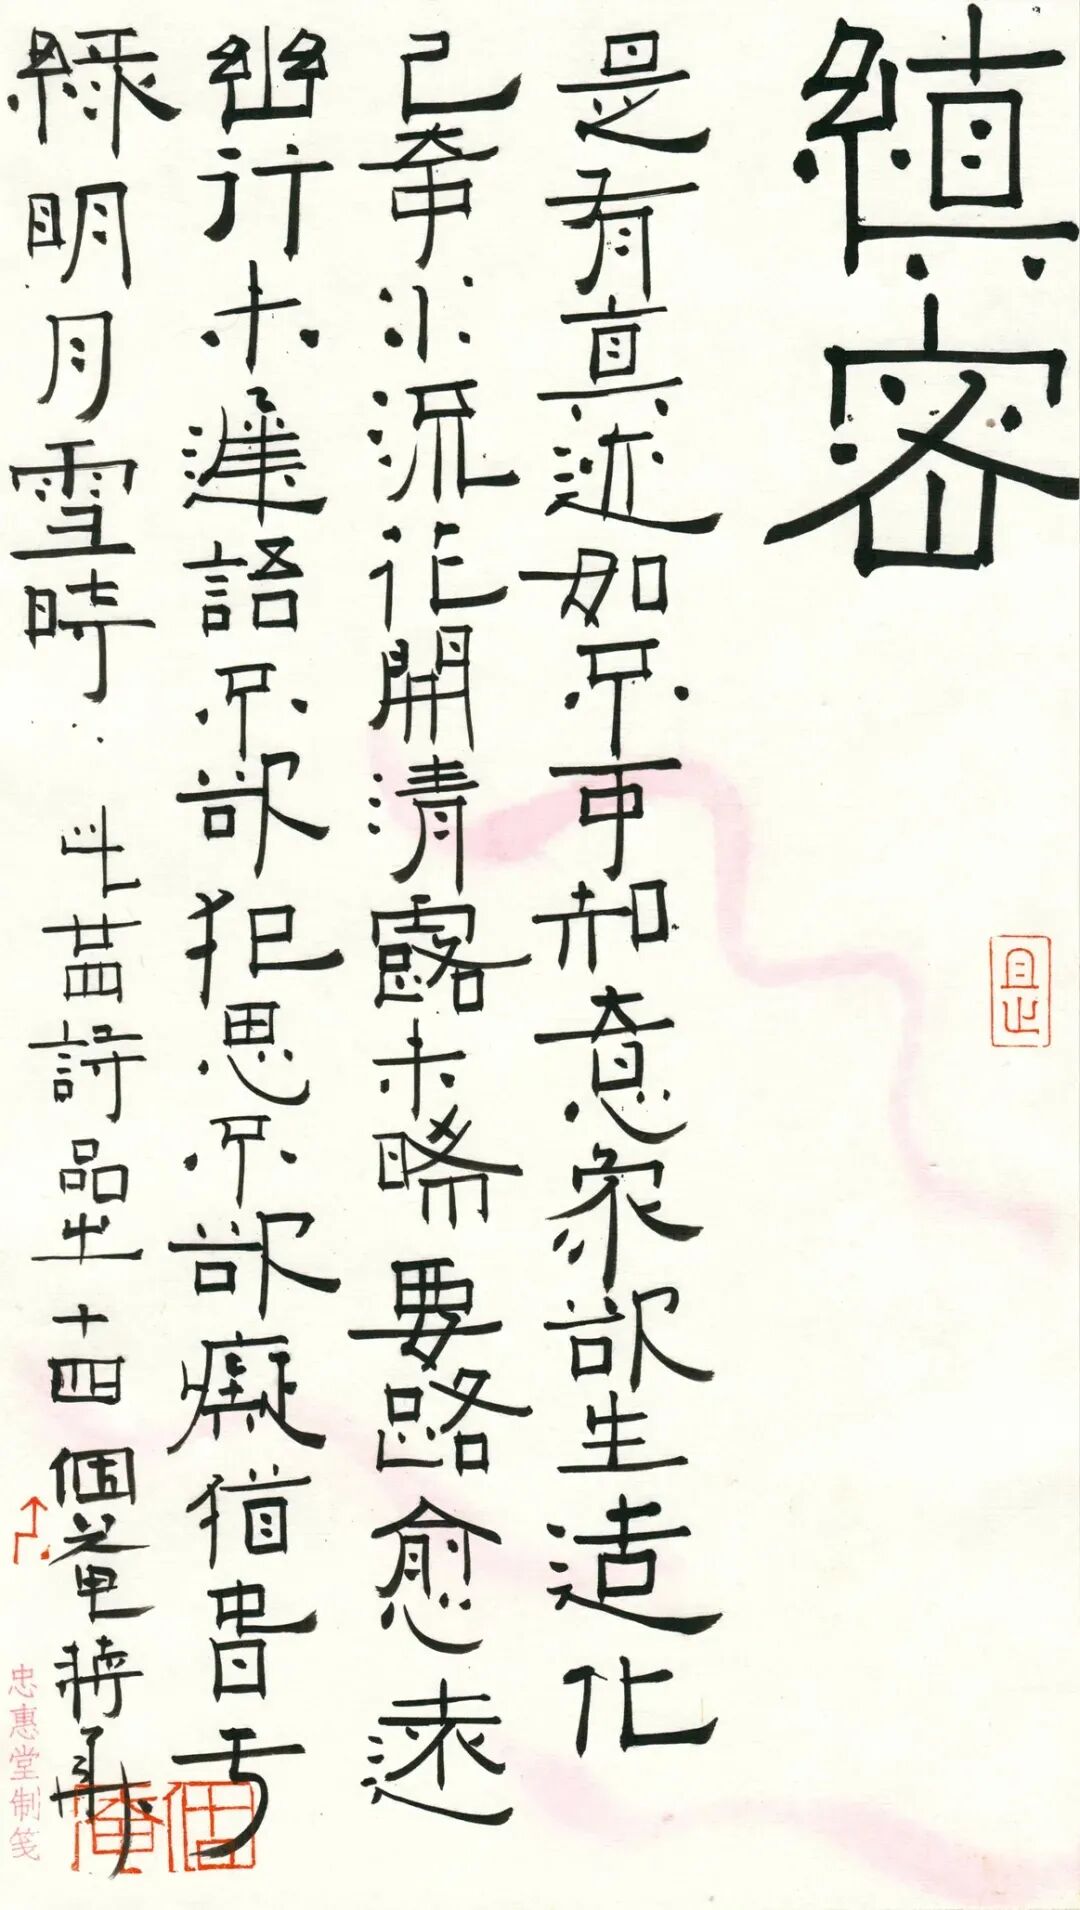 縝密
是有真迹如不可知意象欲生造化
已奇水流花開清露未晞要路愈遠
幽行未遲語不欲犯思不欲癡猶春于
綠明月雪時 此廿四詩品之十四 個菴蔣華
且止
個庵
忠惠堂制笺